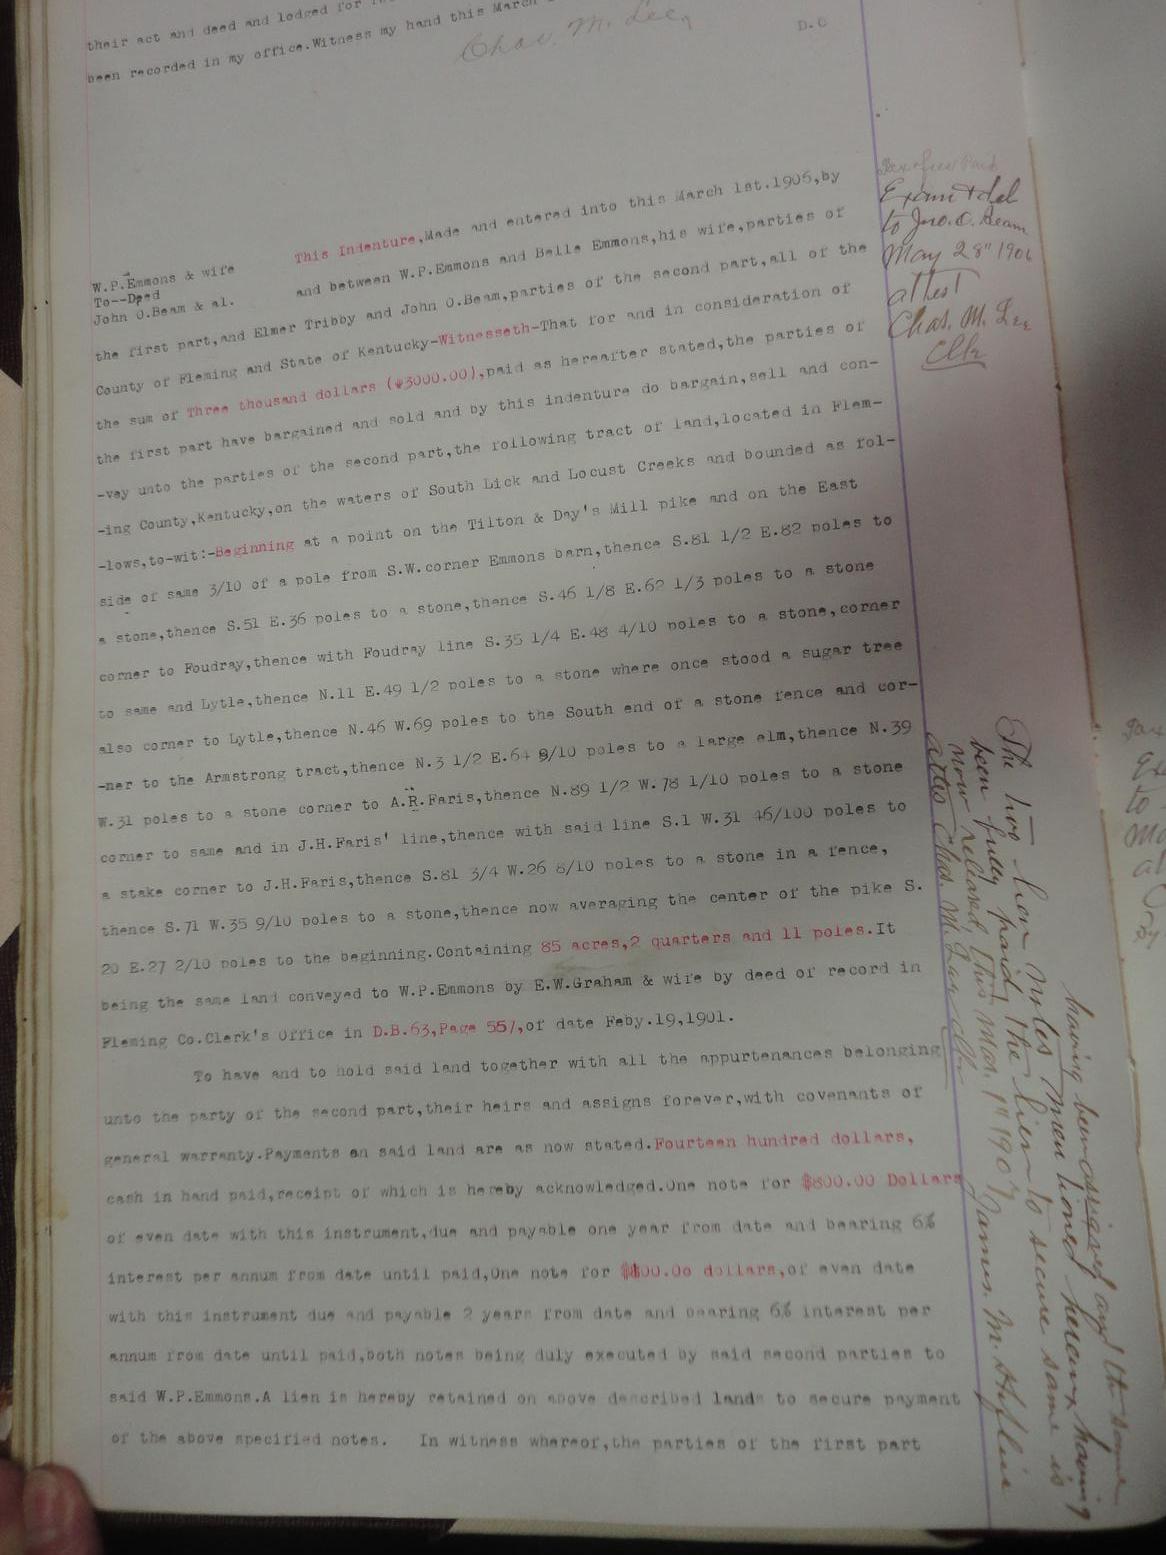 their act and deed and lodged for
been recorded in my office.Witness my hand this March
Chas. M. Lee,
D.C
W.P.Emmons & wife
To--Deed
John O.Beam & al.
This Indenture,Made and entered into this March 1st.1906,by
and between W.P.Emmons and Belle Emmons,his wife,parties of
the first part,and Elmer Tribby and John O.Beam,parties of the second part,all of the
County of Fleming and State of Kentucky-Witnesseth-That for and in consideration of
the sum of Three thousand dollars ($3000.00),paid as hereafter stated,the parties of
the first part have bargained and sold and by this indenture do bargain,sell and con-
-vey unto the parties of the second part,the following tract of land,located in Flem-
-ing County,Kentucky,on the waters of South Lick and Locust Creeks and bounded as fol-
-lows,to-wit:-Beginning at a point on the Tilton & Day's Mill pike and on the East
side of same 3/10 of a pole from S.W.corner Emmons barn,thence S.81 1/2 E.82 poles to
a stone,thence S.51 E.36 poles to a stone,thence S.46 1/8 E.62 1/3 poles to a stone
corner to Foudray,thence with Foudray line S.35 1/4 E.48 4/10 poles to a stone,corner
to same and Lytle,thence N.11 E.49 1/2 poles to a stone where once stood a sugar tree
also corner to Lytle,thence N.46 W.69 poles to the South end of a stone fence and cor-
-ner to the Armstrong tract,thence N.3 1/2 E.64 8/10 poles to a large elm,thence N.39
W.31 poles to a stone corner to A.R.Faris,thence N.89 1/2 W.78 1/10 poles to a stone
corner to same and in J.H.Faris' line,thence with said line S.1 W.31 46/100 poles to
a stake corner to J.H.Faris,thence S.81 3/4 W.26 8/10 poles to a stone in a fence,
thence S.71 W.35 9/10 poles to a stone,thence now averaging the center of the pike S.
20 E.27 2/10 poles to the beginning.Containing 85 acres,2 quarters and 11 poles.It
being the same land conveyed to W.P.Emmons by E.W.Graham & wife by deed of record in
Fleming Co.Clerk's Office in D.B.63,Page 557,of date Feby.19,1901.
To have and to hold said land together with all the appurtenances belonging
unto the party of the second part,their heirs and assigns forever,with covenants of
general warranty.Payments on said land are as now stated.Fourteen hundred dollars,
cash in hand paid,receipt of which is hereby acknowledged.One note for $800.00 Dollars
of even date with this instrument,due and payable one year from date and bearing 6%
interest per annum from date until paid,One note for $800.00 dollars,of even date
with this instrument due and payable 2 years from date and bearing 6% interest per
annum from date until paid,both notes being duly executed by said second parties to
said W.P.Emmons.A lien is hereby retained on above described lands to secure payment
of the above specified notes. In witness whereof,the parties of the first part
Tax & fees Paid
Exam & del
to Jno. O. Beam
May 28" 1906
attest
Chas. M. Lee
Clk
The two lien notes mentioned herein & having
having been assigned and the same
been fully paid, the lien to secure same is
now released, this Mar. 1" 1907
James. M.
attes Chas. M. Lee Clk